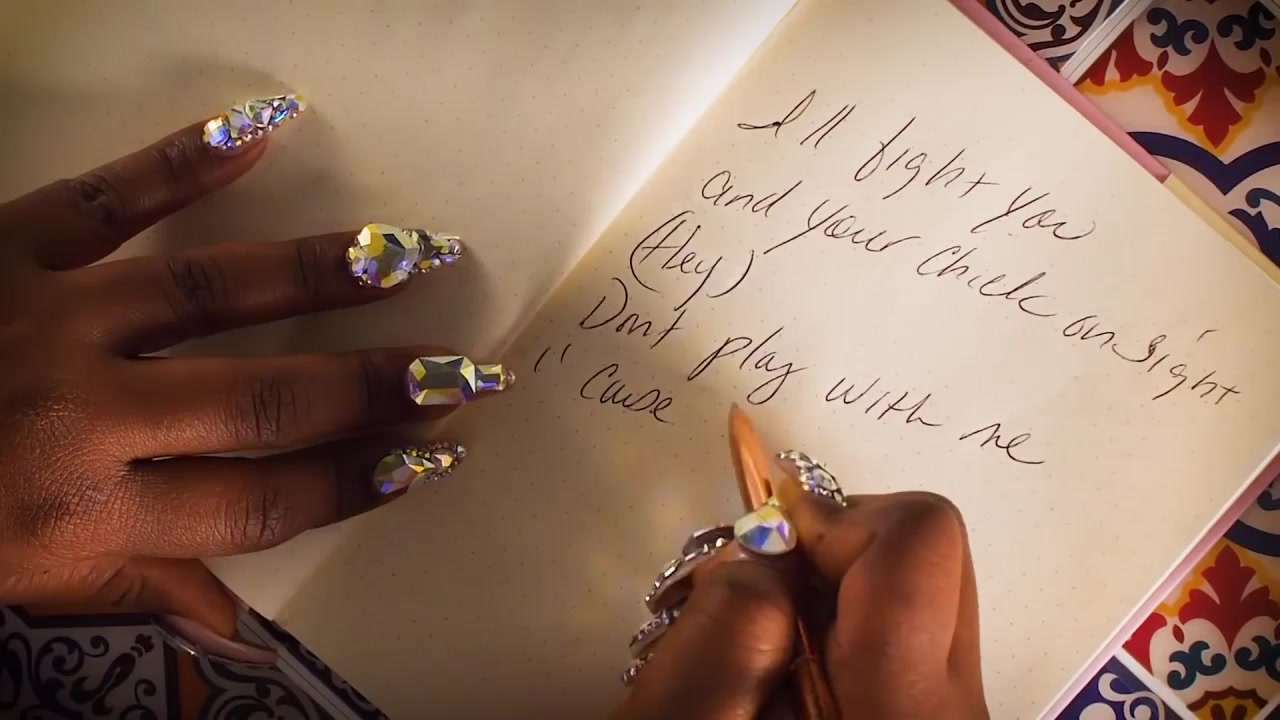 I'll fight you
and your chick on sight
(Hey)
Don't play with me
" cause